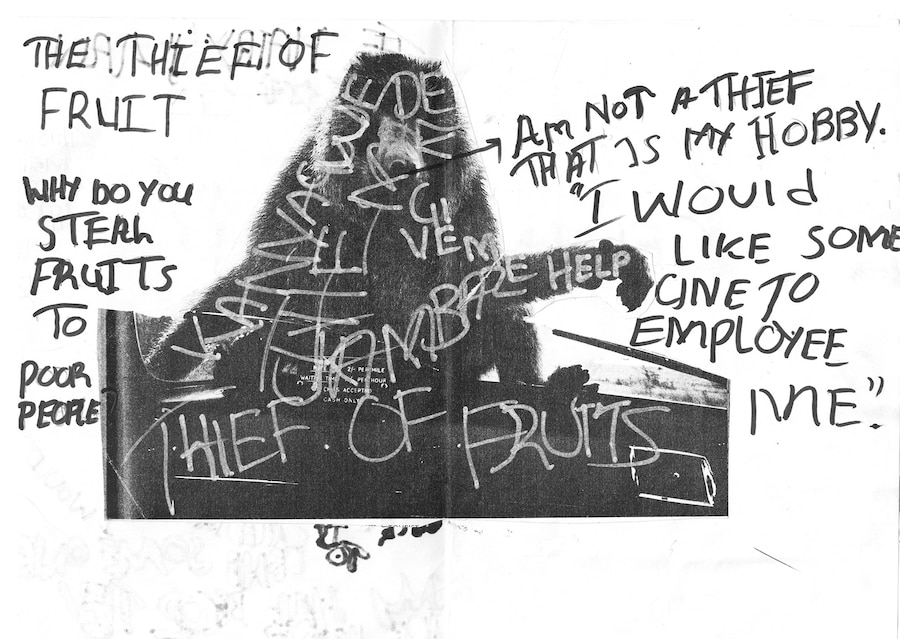 THE THIEF OF
FRUIT
WHY DO YOU
STEAL
FRUITS
TO
POOR
PEOPLE?
AM NOT A THIEF
THAT IS MY HOBBY.
"I WOULD
LIKE SOME
ONE TO
EMPLOYEE
ME".
GI
VE ME
HELP
2/- PER MILE
PER HOUR
ACCEPTED
CASH ONLY
THIEF OF FRUITS